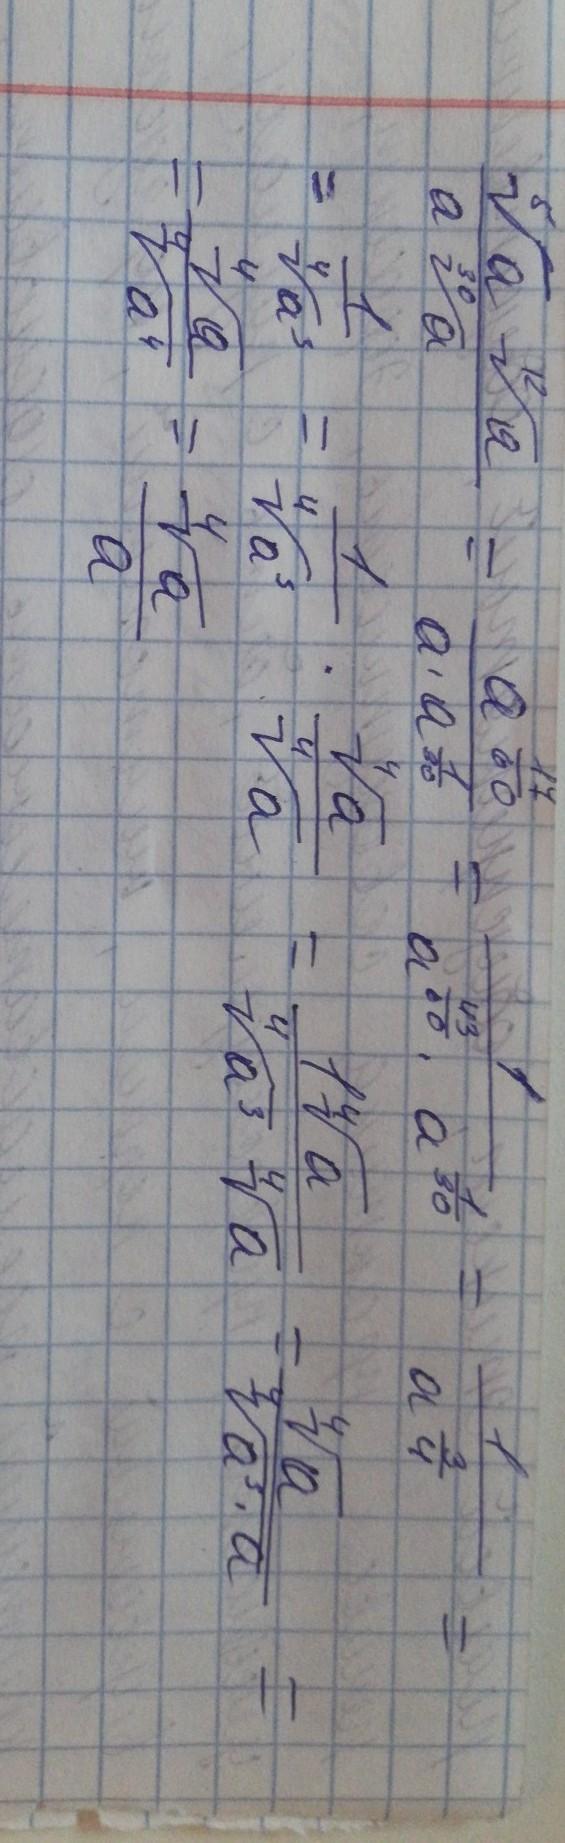 \frac{\sqrt[5]{a} \sqrt[12]{a}}{a \sqrt[30]{a}} = \frac{a^{\frac{17}{60}}}{a \cdot a^{\frac{1}{30}}} = \frac{1}{a^{\frac{43}{60}} \cdot a^{\frac{1}{30}}} = \frac{1}{a^{\frac{3}{4}}} =
= \frac{1}{\sqrt[4]{a^3}} = \frac{1}{\sqrt[4]{a^3}} \cdot \frac{\sqrt[4]{a}}{\sqrt[4]{a}} = \frac{1\sqrt[4]{a}}{\sqrt[4]{a^3} \sqrt[4]{a}} = \frac{\sqrt[4]{a}}{\sqrt[4]{a^3 \cdot a}} =
= \frac{\sqrt[4]{a}}{\sqrt[4]{a^4}} = \frac{\sqrt[4]{a}}{a}